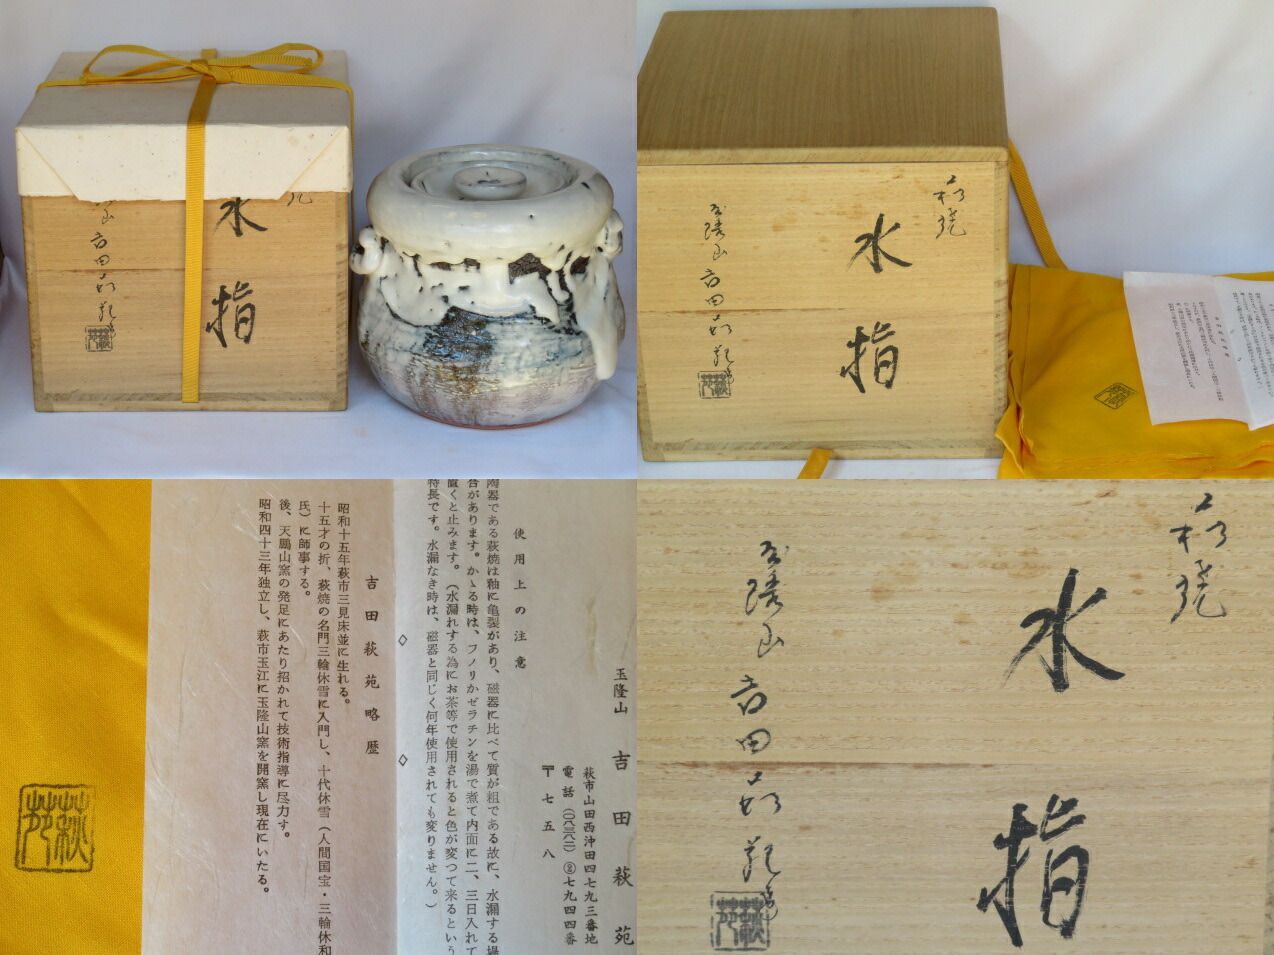 水
指
吉田
萩焼
水
指
玉隆山
吉田萩苑
使用上の注意
陶器である萩焼は釉に亀裂があり、磁器に比べて質が粗である故に、水漏する場
合があります。かゝる時は、フノリかゼラチンを湯で煮て内面に二、三日入れて
置くと止みます。（水漏れする為にお茶等で使用されると色が変つて来るという
特長です。水漏なき時は、磁器と同じく何年使用されても変りません。）
玉隆山 吉田萩苑
萩市山田西沖田四七九三番地
電話（〇八三八二）②七九四四番
〒七五八
吉田萩苑略歴
昭和十五年萩市三見床並に生れる。
十五才の折、萩焼の名門三輪休雪に入門し、十代休雪（人間国宝・三輪休和
氏）に師事する。
後、天鵬山窯の発足にあたり招かれて技術指導に尽力す。
昭和四十三年独立し、萩市玉江に玉隆山窯を開窯し現在にいたる。
萩苑
萩焼
水
指
玉隆山
吉田萩苑
萩苑